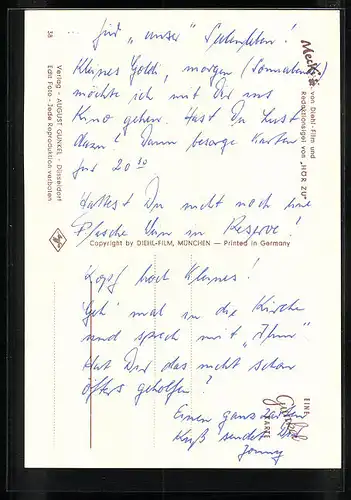 ... für "unser" Seelenleben!
Kleines Goldi, morgen (Sonnabend)
möchte ich mit Dir ins
Kino gehen. Hast Du Lust
dazu? Dann besorge Karten
für 20 10
Hattest Du nicht noch eine
Flasche in Reserve!
Copyright by DIEHL-FILM, MÜNCHEN — Printed in Germany
Kopf hoch Kleines!
Geh' mal in die Kirche
und sprech mit "Ihm"
Hat Dir das nicht schon
öfters geholfen?
Einen ganz zarten
Kuß sendet Dir
Jonny
Mecki
von Diehl-Film und
Redaktionsigel von „HÖR ZU"
38
Verlag - AUGUST GUNKEL - Düsseldorf
Edit Foto - Jede Reproduktion verboten
EINE
KARTE